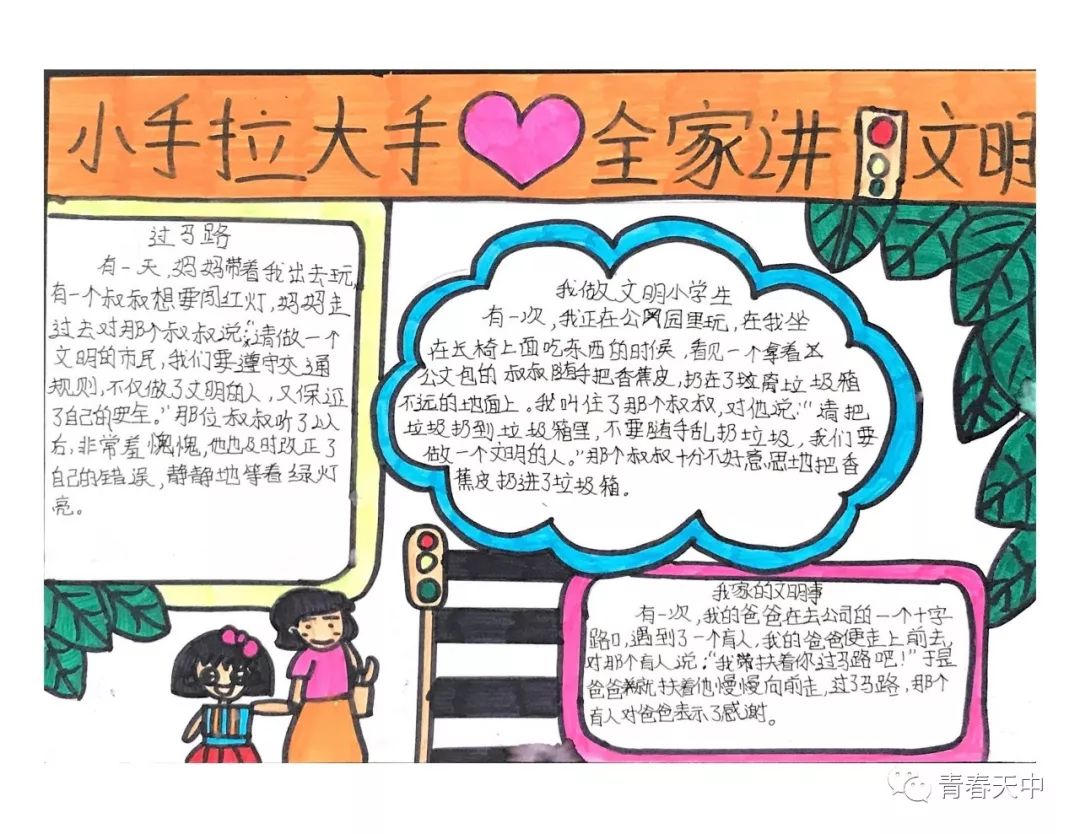 小手拉大手 全家讲 文明
过马路
有一天,妈妈带着我出去玩,
有一个叔叔想要闯红灯,妈妈走
过去对那个叔叔说:“请做一个
文明的市民,我们要遵守交通
规则,不仅做了文明的人,又保证
了自己的要全。”那位叔叔听了以
后,非常羞愧愧,他也及时改正了
自己的错误,静静地等着绿灯
亮。
我做文明小学生
有一次,我正在公园里玩,在我坐
在长椅上面吃东西的时候,看见一个拿着
公文包的叔叔随手把香蕉皮,扔在了离垃圾箱
不远的地面上。我叫住了那个叔叔,对他说:“请把
垃圾扔到垃圾箱里,不要随手乱扔垃圾,我们要
做一个文明的人。”那个叔叔十分不好意思地把香
蕉皮扔进了垃圾箱。
我家的文明事
有一次,我的爸爸在去公司的一个十字
路口,遇到了一个盲人,我的爸爸便走上前去,
对那个盲人说:“我带扶着你过马路吧!”于是
爸爸就扶着他慢慢向前走,过了马路,那个
盲人对爸爸表示了感谢。
青春天中